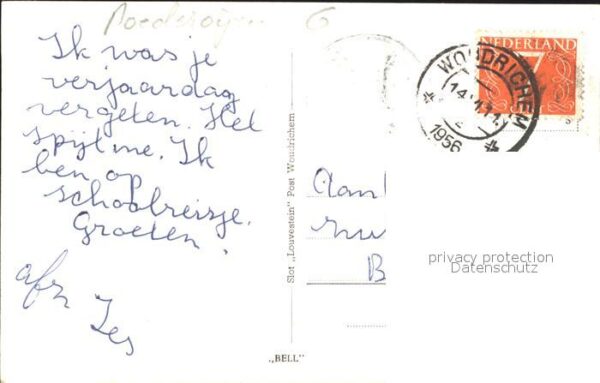 6
Ik was je
verjaardag
vergeten. Het
spijt me. Ik
ben op
schoolreisje.
Groeten.
afz
Slot „Louvestein” Post Woudrichem
„BELL”
NEDERLAND
7
WOUDRICHEM
1956
Aan
B
privacy protection
Datenschutz